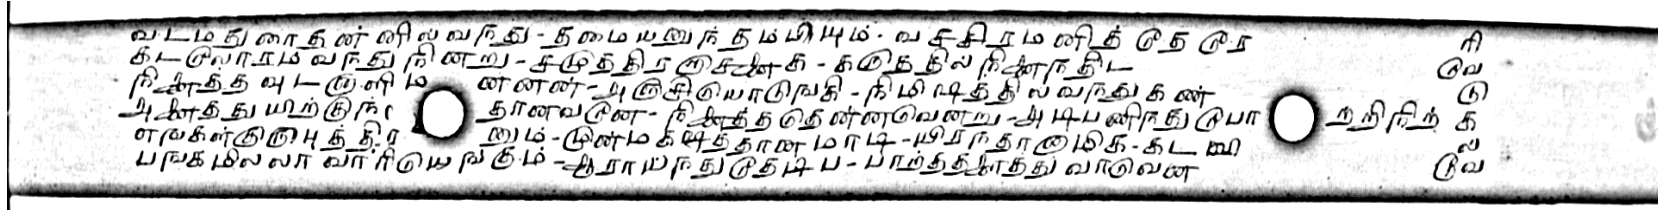 வடமதுரைதன்னில்வந்து - தமையனுந்தம்பியும் - வச்சிரமணித்தேரே
கடலோரம்வந்துநின்று - சமுத்திரராசனைக் - கருத்தில்நினைந்திட
நினைத்தவுடனளிம ன்னன் - அஞ்சியொடுங்கி - நிமிஷத்தில்வந்துகண்
அனைத்துயிற்குந் தானவனே - நினைத்ததென்னவென்று - அடிபணிந்துபோ ற்றிநிற்
எங்கள்குருபுத்திர னும் - முன்மகிஷத்தானமாடி - யிறந்தானுமிக் - கடலி
பங்கமில்லாவாரியெங்கும் - ஆராய்ந்துதேடிப் - பார்த்தனைத்துவாவென
ரி
வே
டு
க
ல
வே